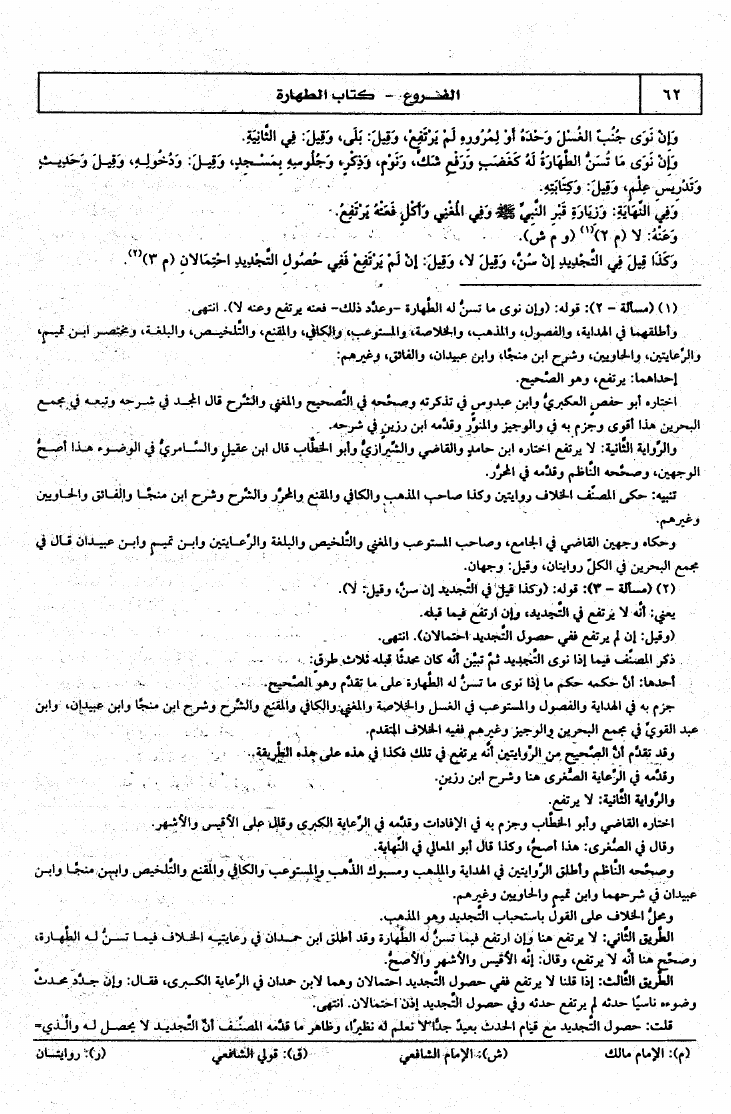 ٦٢
الفروع - كتاب الطهارة
وَإِنْ نَوَى جُنُبٌ الغُسْلَ وَحْدَهُ أَوْ لِمُرُورِهِ لَمْ يَرْتَفِعْ، وَقِيلَ: بَلَى، وَقِيلَ: فِي الثَّانِيَةِ.
وَإِنْ نَوَى مَا تُسَنُّ الطَّهَارَةُ لَهُ كَغَضَبٍ وَرَفْعِ شَكٍّ، وَنَوْمٍ، وَذِكْرٍ، وَجُلُوسِهِ بِمَسْجِدٍ، وَقِيلَ: وَدُخُولِهِ، وَقِيلَ وَحَدِيثٍ
وَتَدْرِيسِ عِلْمٍ، وَقِيلَ: وَكِتَابَتِهِ.
وَفِي النِّهَايَةِ: وَزِيَارَةِ قَبْرِ النَّبِيِّ ﷺ وَفِي الْمُغْنِي وَأَكْلٍ فَعَنْهُ يَرْتَفِعُ.
وَعَنْهُ: لَا (م ٢)(١) (و م ش).
وَكَذَا قِيلَ فِي التَّجْدِيدِ إِنْ سُنَّ، وَقِيلَ لَا، وَقِيلَ: إِنْ لَمْ يَرْتَفِعْ فَفِي حُصُولِ التَّجْدِيدِ احْتِمَالَانِ (م ٣)(٢).
(١) (مسألة - ٢): قوله: (وإن نوى ما تسنُّ له الطَّهارة -وعدَّد ذلك- فعنه يرتفع وعنه لا). انتهى.
وأطلقهما في الهداية، والفصول، والمذهب، والخلاصة، والمستوعب، والكافي، والمقنع، والتَّلخيص، والبلغة، ومختصر ابن تميم،
والرِّعايتين، والحاويين، وشرح ابن منجَّا، وابن عبيدان، والفائق، وغيرهم:
إحداهما: يرتفع، وهو الصَّحيح.
اختاره أبو حفص العكبريُّ وابن عبدوس في تذكرته وصحَّحه في التَّصحيح والمغني والشَّرح قال المجد في شرحه وتبعه في مجمع
البحرين هذا أقوى وجزم به في والوجيز والمنوَّر وقدَّمه ابن رزين في شرحه.
والرِّواية الثانية: لا يرتفع اختاره ابن حامد والقاضي والشِّيرازيُّ وأبو الخطَّاب قال ابن عقيل والسَّامريُّ في الوضوء هذا أصحُّ
الوجهين، وصحَّحه النَّاظم وقدَّمه في المحرَّر.
تنبيه: حكى المصنِّف الخلاف روايتين وكذا صاحب المذهب والكافي والمقنع والمحرَّر والشَّرح وشرح ابن منجَّا والفائق والحاويين
وغيرهم.
وحكاه وجهين القاضي في الجامع، وصاحب المستوعب والمغني والتَّلخيص والبلغة والرِّعايتين وابن تميم وابن عبيدان قال في
مجمع البحرين في الكلِّ روايتان، وقيل: وجهان.
(٢) (مسألة - ٣): قوله: (وكذا قيل في التَّجديد إن سنَّ، وقيل: لا).
يعني: أنَّه لا يرتفع في التَّجديد، وإن ارتفع فيما قبله.
(وقيل: إن لم يرتفع ففي حصول التَّجديد احتمالان). انتهى.
ذكر المصنِّف فيما إذا نوى التَّجديد ثمَّ تبيَّن أنَّه كان محدثًا قبله ثلاث طرق:
أحدها: أنَّ حكمه حكم ما إذا نوى ما تسنُّ له الطَّهارة على ما تقدَّم وهو الصَّحيح.
جزم به في الهداية والفصول والمستوعب في الغسل والخلاصة والمغني والكافي والمقنع والشَّرح وشرح ابن منجَّا وابن عبيدان، وابن
عبد القويِّ في مجمع البحرين والوجيز وغيرهم ففيه الخلاف المتقدم.
وقد تقدَّم أنَّ الصَّحيح من الرِّوايتين أنَّه يرتفع في تلك فكذا في هذه على هذه الطَّريقة.
وقدَّمه في الرِّعاية الصُّغرى هنا وشرح ابن رزين.
والرِّواية الثَّانية: لا يرتفع.
اختاره القاضي وأبو الخطَّاب وجزم به في الإفادات وقدَّمه في الرِّعاية الكبرى وقال على الأقيس والأشهر.
وقال في الصُّغرى: هذا أصحُّ، وكذا قال أبو المعالي في النِّهاية.
وصحَّحه النَّاظم وأطلق الرِّوايتين في الهداية والمذهب ومسبوك الذَّهب والمستوعب والكافي والمقنع والتَّلخيص وابن منجَّا وابن
عبيدان في شرحهما وابن تميم والحاويين وغيرهم.
ومحلُّ الخلاف على القول باستحباب التَّجديد وهو المذهب.
الطَّريق الثَّاني: لا يرتفع هنا وإن ارتفع فيما تسنُّ له الطَّهارة وقد أطلق ابن حمدان في رعايتيه الخلاف فيما تسنُّ له الطَّهارة،
وصحَّح هنا أنَّه لا يرتفع، وقال: إنَّه الأقيس والأشهر والأصحُّ.
الطَّريق الثَّالث: إذا قلنا لا يرتفع ففي حصول التَّجديد احتمالان وهما لابن حمدان في الرِّعاية الكبرى، فقال: وإن جدَّد محدثٌ
وضوءه ناسيًا حدثه لم يرتفع حدثه وفي حصول التَّجديد إذن احتمالان. انتهى.
قلت: حصول التَّجديد مع قيام الحدث بعيدٌ جدًّا لا نعلم له نظيرًا، وظاهر ما قدَّمه المصنِّف أنَّ التَّجديد لا يحصل له والَّذي=
(م): الإمام مالك (ش): الإمام الشافعي (ق): قولي الشافعي (ر): روايتان